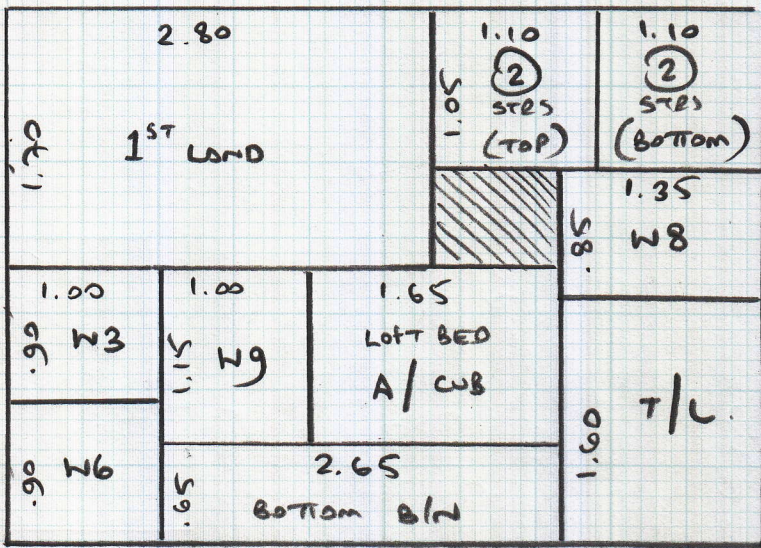 2.80
1.70
1ST LAND
1.10
1.05
2
STRS
(TOP)
1.10
2
STRS
(BOTTOM)
1.35
.85
W8
1.00
.90
W3
1.00
1.15
W9
1.65
LOFT BED
A/CUB
1.60
T/L.
.90
W6
2.65
.65
BOTTOM B/N